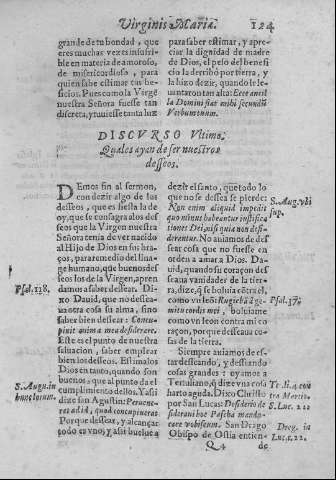 Virginis Mariæ.
124
grande de tu bondad, que
eres muchas vezes insufri-
ble en materia de amoroso,
de misericordioso, para
quien sabe estimar tus be-
neficios. Pues como la Virgē
nuestra Señora fuesse tan
discreta, y tuuiesse tanta luz
para saber estimar, y apre-
ciar la dignidad de madre
de Dios, el peso del benefi
cio la derribò por tierra, y
la hizo dezir, quando le le-
uantaron tan alta: Ecce ancil
la Domini fiat mihi secundũ
Verbum tuum.
DISCVRSO Vltimo.
Quales ayan de ser nuestros
desseos.
DEmos fin al sermon,
con dezir algo de los
desseos, que es fiesta la de
oy, que se consagra a los des
seos que la Virgen nuestra
Señora tenia de ver nacido
al Hijo de Dios en sus bra-
ços, para remedio del lina-
ge humano, que buenos des
seos los de la Virgen, apren
damos a saber dessear. Di-
xo Dauid, que no dessea-
ua otra cosa su alma, sino
saber bien dessear: Concu-
piuit anima mea desiderare.
Este es el punto de nuestra
saluacion, saber emplear
bien los desseos. Estimalos
Dios en tanto, quando son
buenos que al punto da el
cumplimiento dellos. Y assi
dize san Agustin: Peruene-
ras ad id, quod concupineras
Porque dessear, y alcançar
todo es vno, y assi buelue a
Psal. 118.
S. Augu. in
hunc locum.
dezir el santo, que todo lo
que no se dessea se pierde:
Non enim aliquid impedit
quo minus habeantur iustifica
tiones Dei, nisi quia non desi-
derentur. No auiamos de des
sear cosa que no fuesse en
orden a amar a Dios. Dauid
, quando su coraçon des
seaua vanidades de la tier-
ra, dize, q̃ se boluia cõtra el,
como vn leõ: Rugiebã à ge-
mitu cordis mei, boluiame
como vn leon contra mi co
raçon, porque desseaua co-
sas de la tierra.
Siempre auiamos de es-
tar desseando, y desseando
cosas grandes: y oyamos a
Tertuliano, q̃ dize vna cosa
harto aguda. Dixo Christo
por San Lucas: Desiderio de
sideraui hoc Pascha mandu-
care vobiscum. San Drago
Obispo de Ostia entien-
S. Aug. vbi
sup.
Psal. 37.
Te. li. 4. con
tra Marcio.
S. Luc. 22
Dreg. in
Luc. 22.
Q 4
de